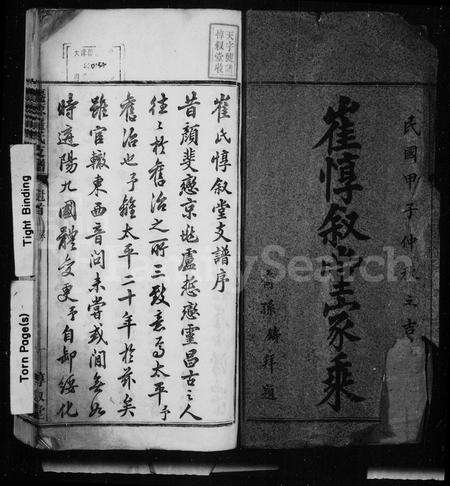 民國甲子仲秋之吉
崔惇叙堂家乘
孫鏞拜題
天字號譜
惇叙堂收
崔氏惇叙堂支譜序
昔顏斐戀京兆盧慈戀靈昌古之人
往々於舊治之所三致意焉太平予
舊治也予離太平二十年於茲矣
雖官轍東西音問未嘗或間無如
時遘陽九國體變更予自卸綏化
惇叙堂
FamilySearch
Tight Binding
Torn Page(s)